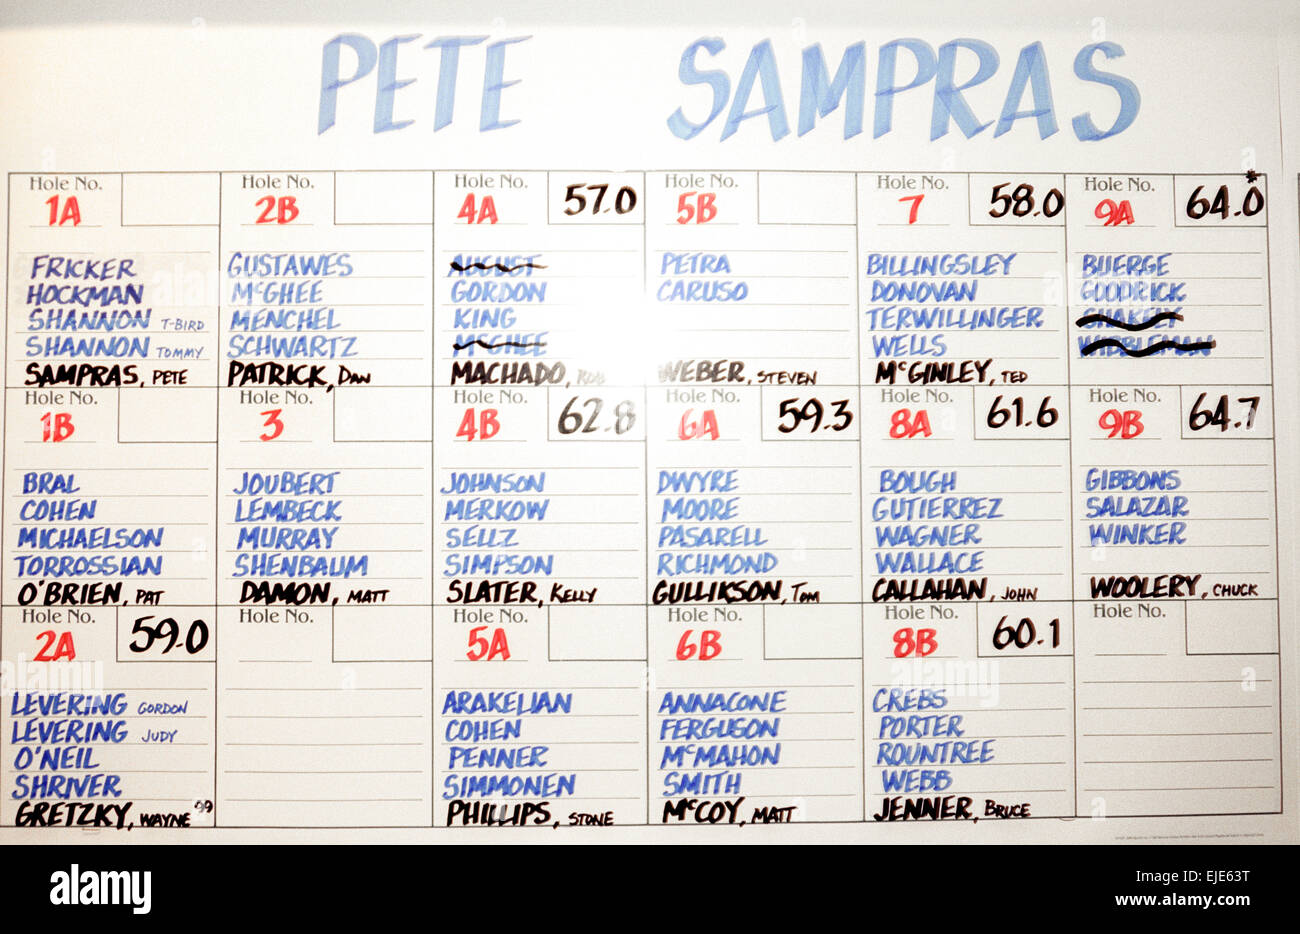 PETE SAMPRAS
Hole No.
1A
FRICKER
HOCKMAN
SHANNON T-BIRD
SHANNON TOMMY
SAMPRAS, PETE
Hole No.
2B
GUSTAWES
McGHEE
MENCHEL
SCHWARTZ
PATRICK, DAN
Hole No.
4A
57.0
AUGUST
GORDON
KING
McGHEE
MACHADO, ROB
Hole No.
5B
PETRA
CARUSO
WEBER, STEVEN
Hole No.
7
58.0
BILLINGSLEY
DONOVAN
TERWILLINGER
WELLS
McGINLEY, TED
Hole No.
9A
64.0*
BUERGE
GOODRICK
SHAKELY
WIBBLEMAN
Hole No.
1B
BRAL
COHEN
MICHAELSON
TORROSSIAN
O'BRIEN, PAT
Hole No.
3
JOUBERT
LEMBECK
MURRAY
SHENBAUM
DAMON, MATT
Hole No.
4B
62.8
JOHNSON
MERKOW
SELLZ
SIMPSON
SLATER, KELLY
Hole No.
6A
59.3
DWYRE
MOORE
PASARELL
RICHMOND
GULLIKSON, TOM
Hole No.
8A
61.6
BOUGH
GUTIERREZ
WAGNER
WALLACE
CALLAHAN, JOHN
Hole No.
9B
64.7
GIBBONS
SALAZAR
WINKER
WOOLERY, CHUCK
Hole No.
2A
59.0
LEVERING GORDON
LEVERING JUDY
O'NEIL
SHRIVER
GRETZKY, WAYNE 99
Hole No.
Hole No.
5A
ARAKELIAN
COHEN
PENNER
SIMMONEN
PHILLIPS, STONE
Hole No.
6B
ANNACONE
FERGUSON
McMAHON
SMITH
McCOY, MATT
Hole No.
8B
60.1
CREBS
PORTER
ROUNTREE
WEBB
JENNER, BRUCE
Hole No.
alamy
Image ID: EJE63T
www.alamy.com